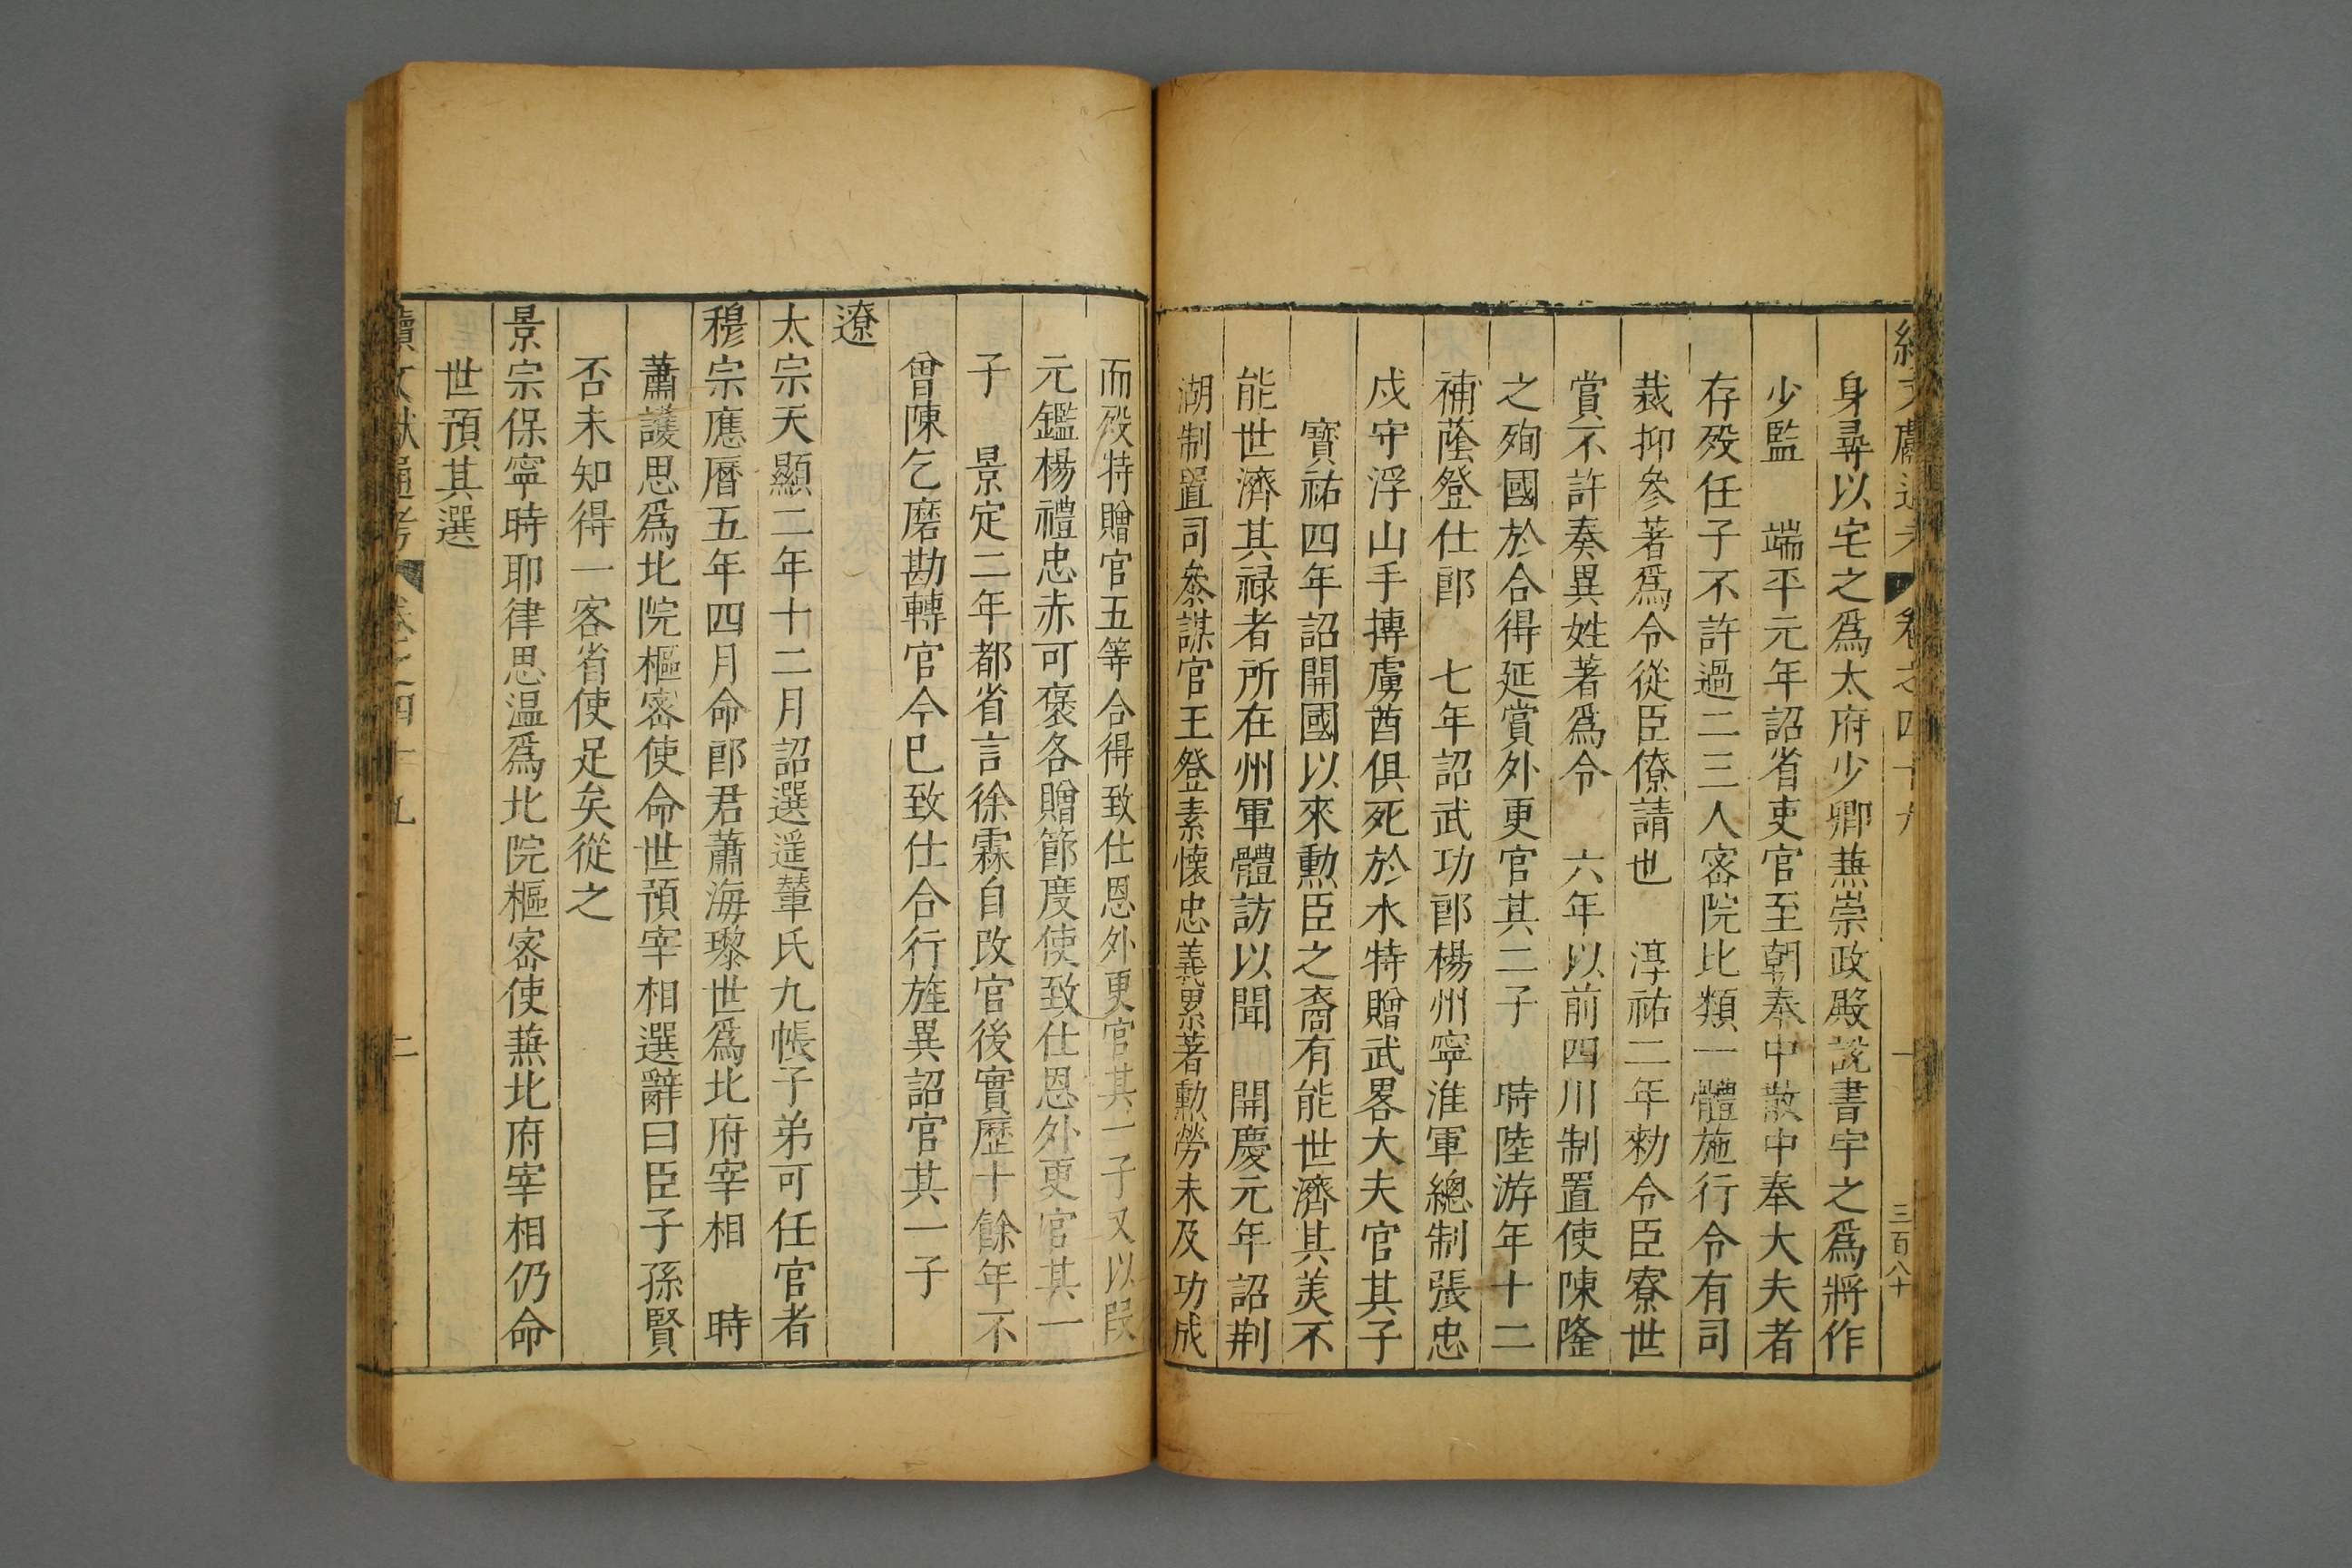 續文獻通考 卷之四十九 一 三百八十
身尋以宅之爲太府少卿蕪崇政殿說書宇之爲將作
少監 端平元年詔省吏官至朝奉中散中奉大夫者
存殁任子不許過二三人宻院比類一體施行令有司
裁抑參著爲令從臣僚請也 淳祐二年勑令臣寮世
賞不許奏異姓著爲令 六年以前四川制置使陳隆
之殉國於合得延賞外更官其二子 時陸游年十二
補蔭登仕郎 七年詔武功郎楊州寧淮軍總制張忠
戍守浮山手摶虜酋俱死於水特贈武畧大夫官其子
寳祐四年詔開國以來勳臣之裔有能世濟其美不
能世濟其祿者所在州軍體訪以聞 開慶元年詔荆
湖制置司叅謀官王登素懷忠義累著勳勞未及功成
而殁特贈官五等合得致仕恩外更官其一子又以段
元鑑楊禮忠赤可褒各贈節度使致仕恩外更官其一
子 景定二年都省言徐霖自改官後實歷十餘年不
曾陳乞磨勘轉官今巳致仕合行旌異詔官其一子
遼
太宗天顯二年十二月詔選遥輦氏九帳子弟可任官者
穆宗應曆五年四月命郎君蕭海瓈世爲北府宰相 時
蕭護思爲北院樞宻使命世預宰相選辭曰臣子孫賢
否未知得一客省使足矣從之
景宗保寧時耶律思温爲北院樞宻使蕪北府宰相仍命
世預其選
續文獻通考 卷之四十九 二